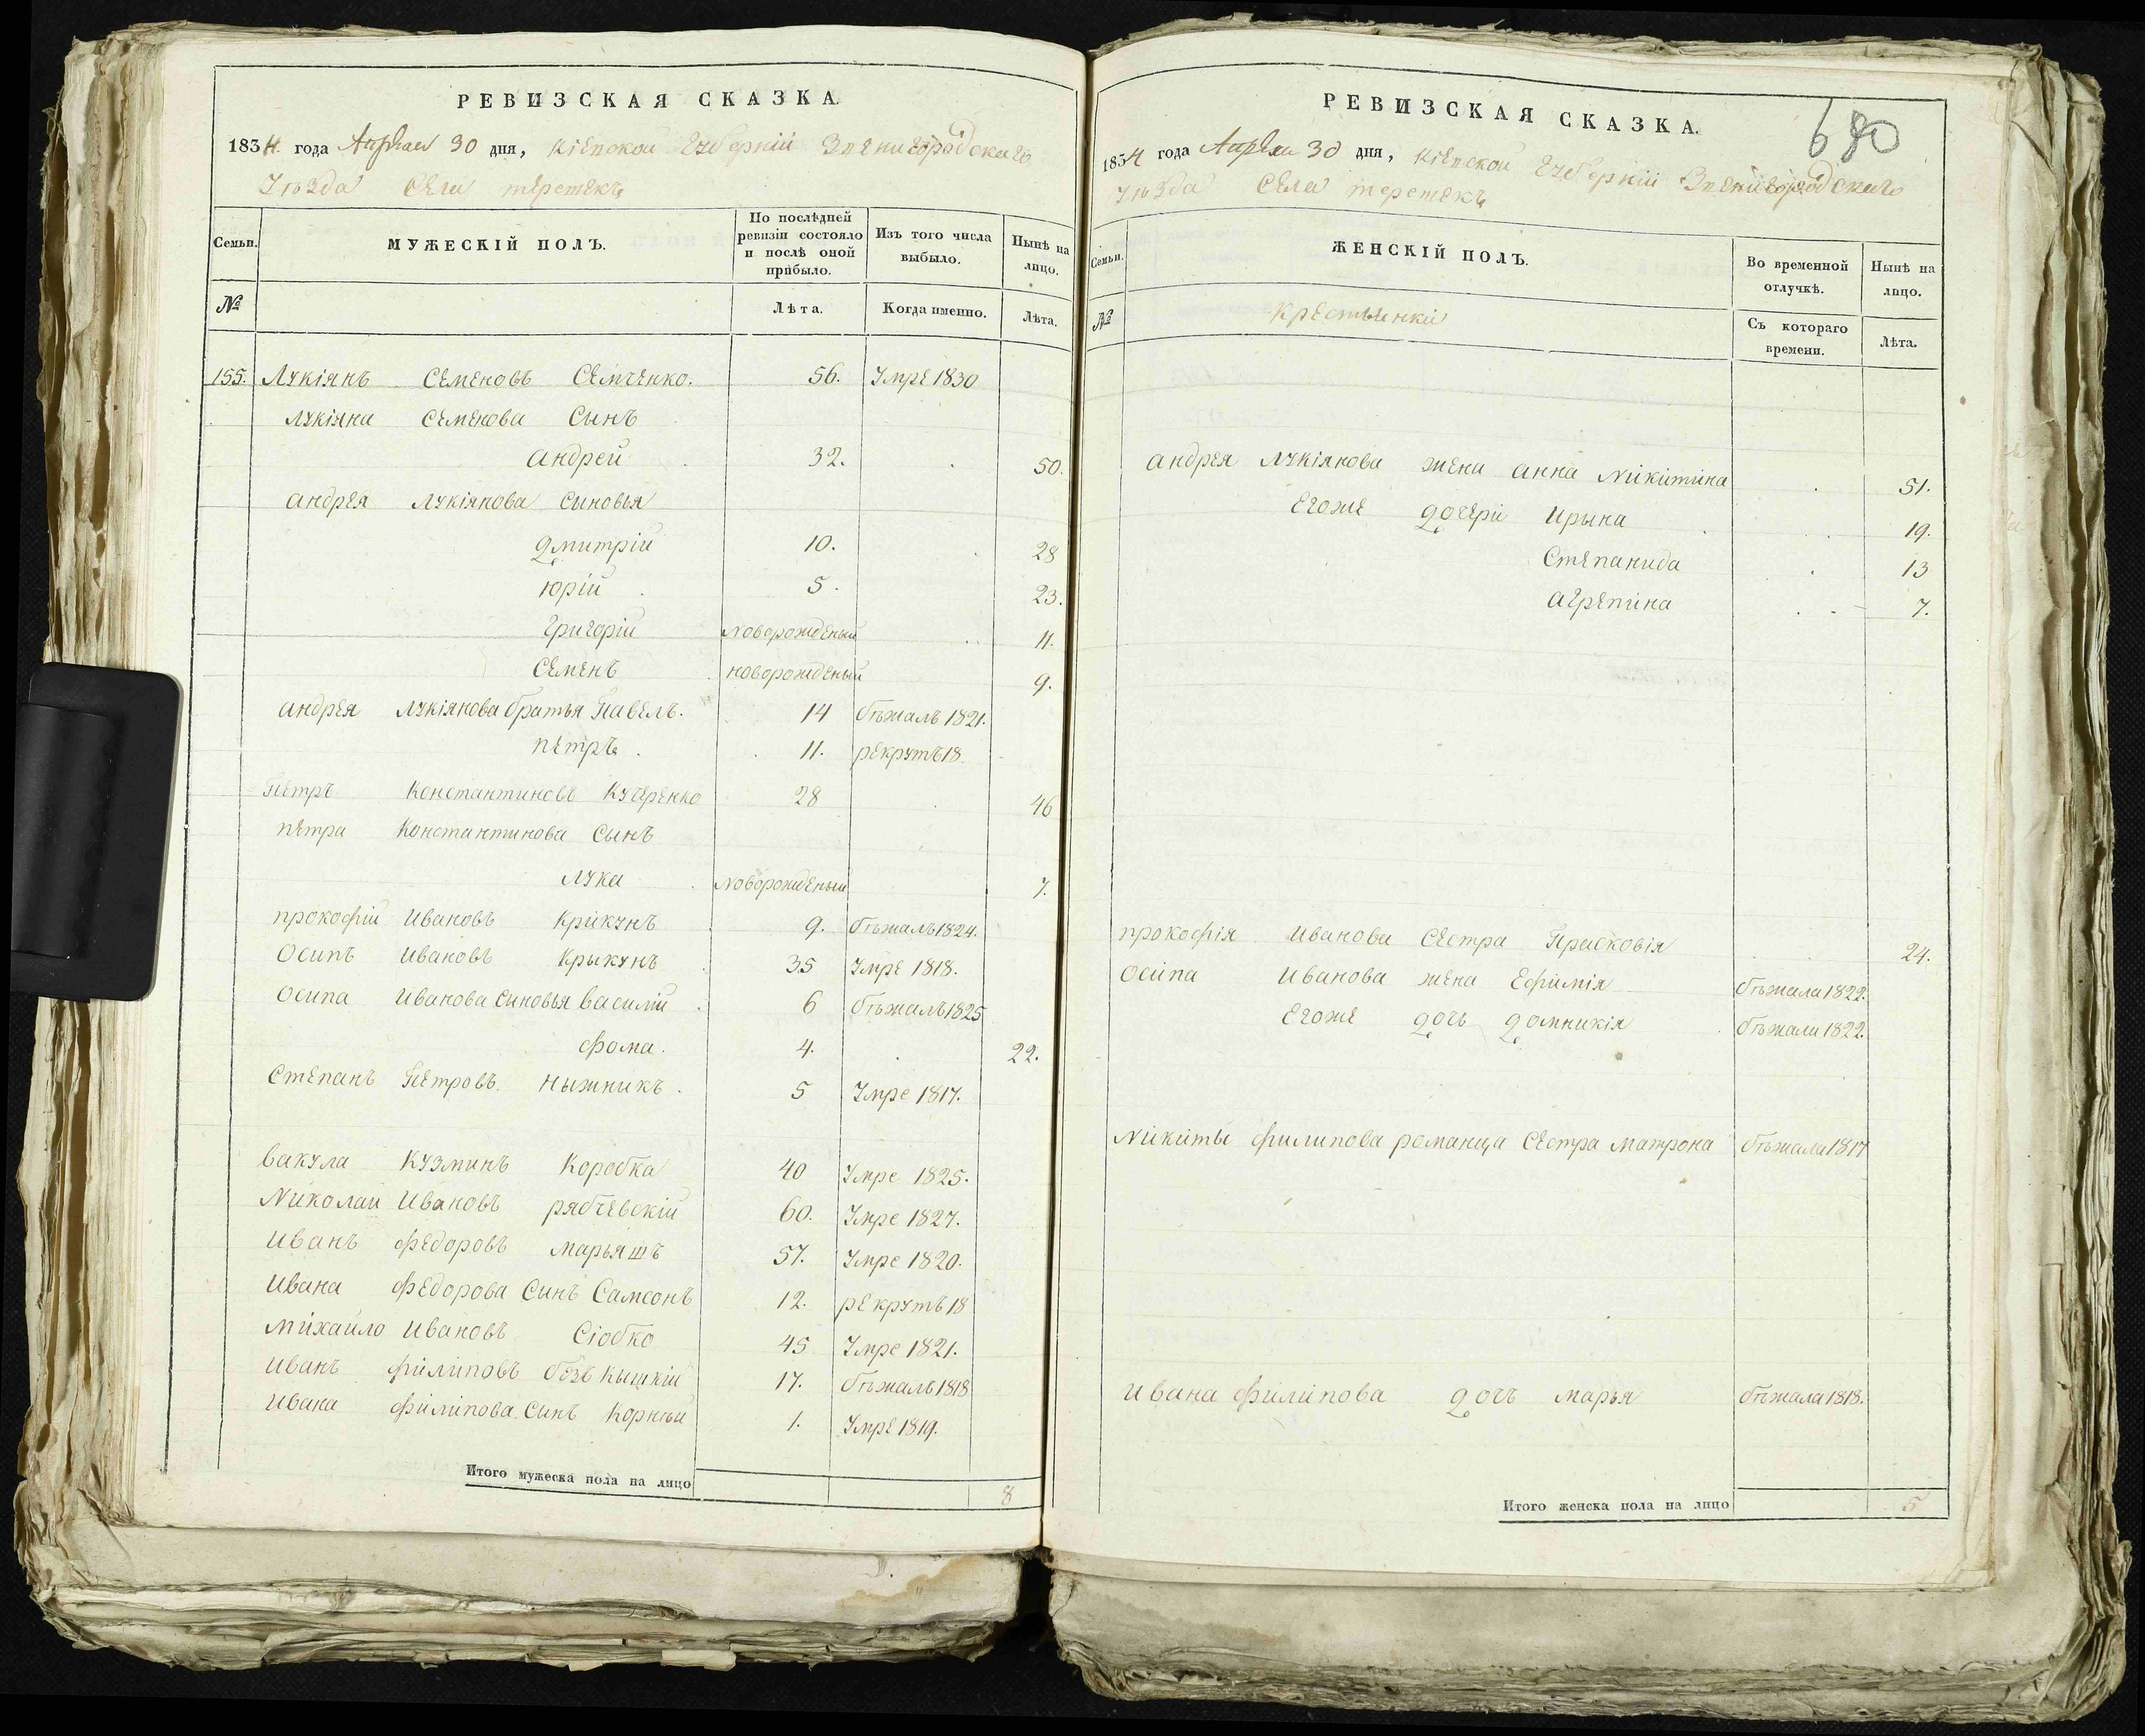 РЕВИЗСКАЯ СКАЗКА.
1834 года Апреля 30 дня, Кіевской Губерніи Звенигородскаго
Уѣзда Села
Семьи. МУЖЕСКІЙ ПОЛЪ. По послѣдней ревизіи состояло и послѣ оной прибыло. Изъ того числа выбыло. Нынѣ на лицо.
№ Лѣта. Когда именно. Лѣта.
155. Лукіянъ Семеновъ Семченко. 56. Умре 1830
Лукіяна Семенова Сынъ
Андрей 32. 50.
Андрея Лукіянова Сыновья
Дмитрій 10. 28
Юрій 5. 23.
Григорій новорожденый 11.
Семенъ новорожденый 9.
Андрея Лукіянова братья Павелъ. 14 бѣжалъ 1821.
Петръ. 11. рекрутъ 18.
Петръ Константиновъ Кучеренко 28 46
Петра Константинова Сынъ
Лука новорожденый 7.
Прокофій Ивановъ Крикунъ 9. бѣжалъ 1824.
Осипъ Ивановъ Крыкунъ 35 Умре 1818.
Осипа Иванова Синовья Василій 6 бѣжалъ 1825
Фома. 4. 22.
Степанъ Петровъ Ныжникъ. 5 Умре 1817.
Вакула Кузминъ Коробка 40 Умре 1825.
Николай Ивановъ Рябчевскій 60. Умре 1827.
Иванъ Федоровъ Марьяшъ 57. Умре 1820.
Ивана Федорова Синъ Самсонъ 12. рекрутъ 18
Михайло Ивановъ Сіобко 45 Умре 1821.
Иванъ Филиповъ 17. бѣжалъ 1818
Ивана Филипова Синъ Корнѣй 1. Умре 1819.
Итого мужеска пола на лицо 8
РЕВИЗСКАЯ СКАЗКА.
680
1834 года Апреля 30 дня, Кіевской Губерніи Звенигородскаго
Уѣзда Села
Семьи. ЖЕНСКІЙ ПОЛЪ. Во временной отлучкѣ. Нынѣ на лицо.
№ Крестьянки Съ котораго времени. Лѣта.
Андрея Лукіянова жена Анна Никитина 51.
Егоже дочери Ирына 19.
Степанида 13
Агрепина 7.
Прокофія Иванова Сестра Прасковія 24.
Осипа Иванова жена Ефимія бѣжала 1822.
Егоже дочь Домникія бѣжала 1822.
Никиты Филипова Романца Сестра Матрона бѣжала 1817
Ивана Филипова дочь Марья бѣжала 1818.
Итого женска пола на лицо 5